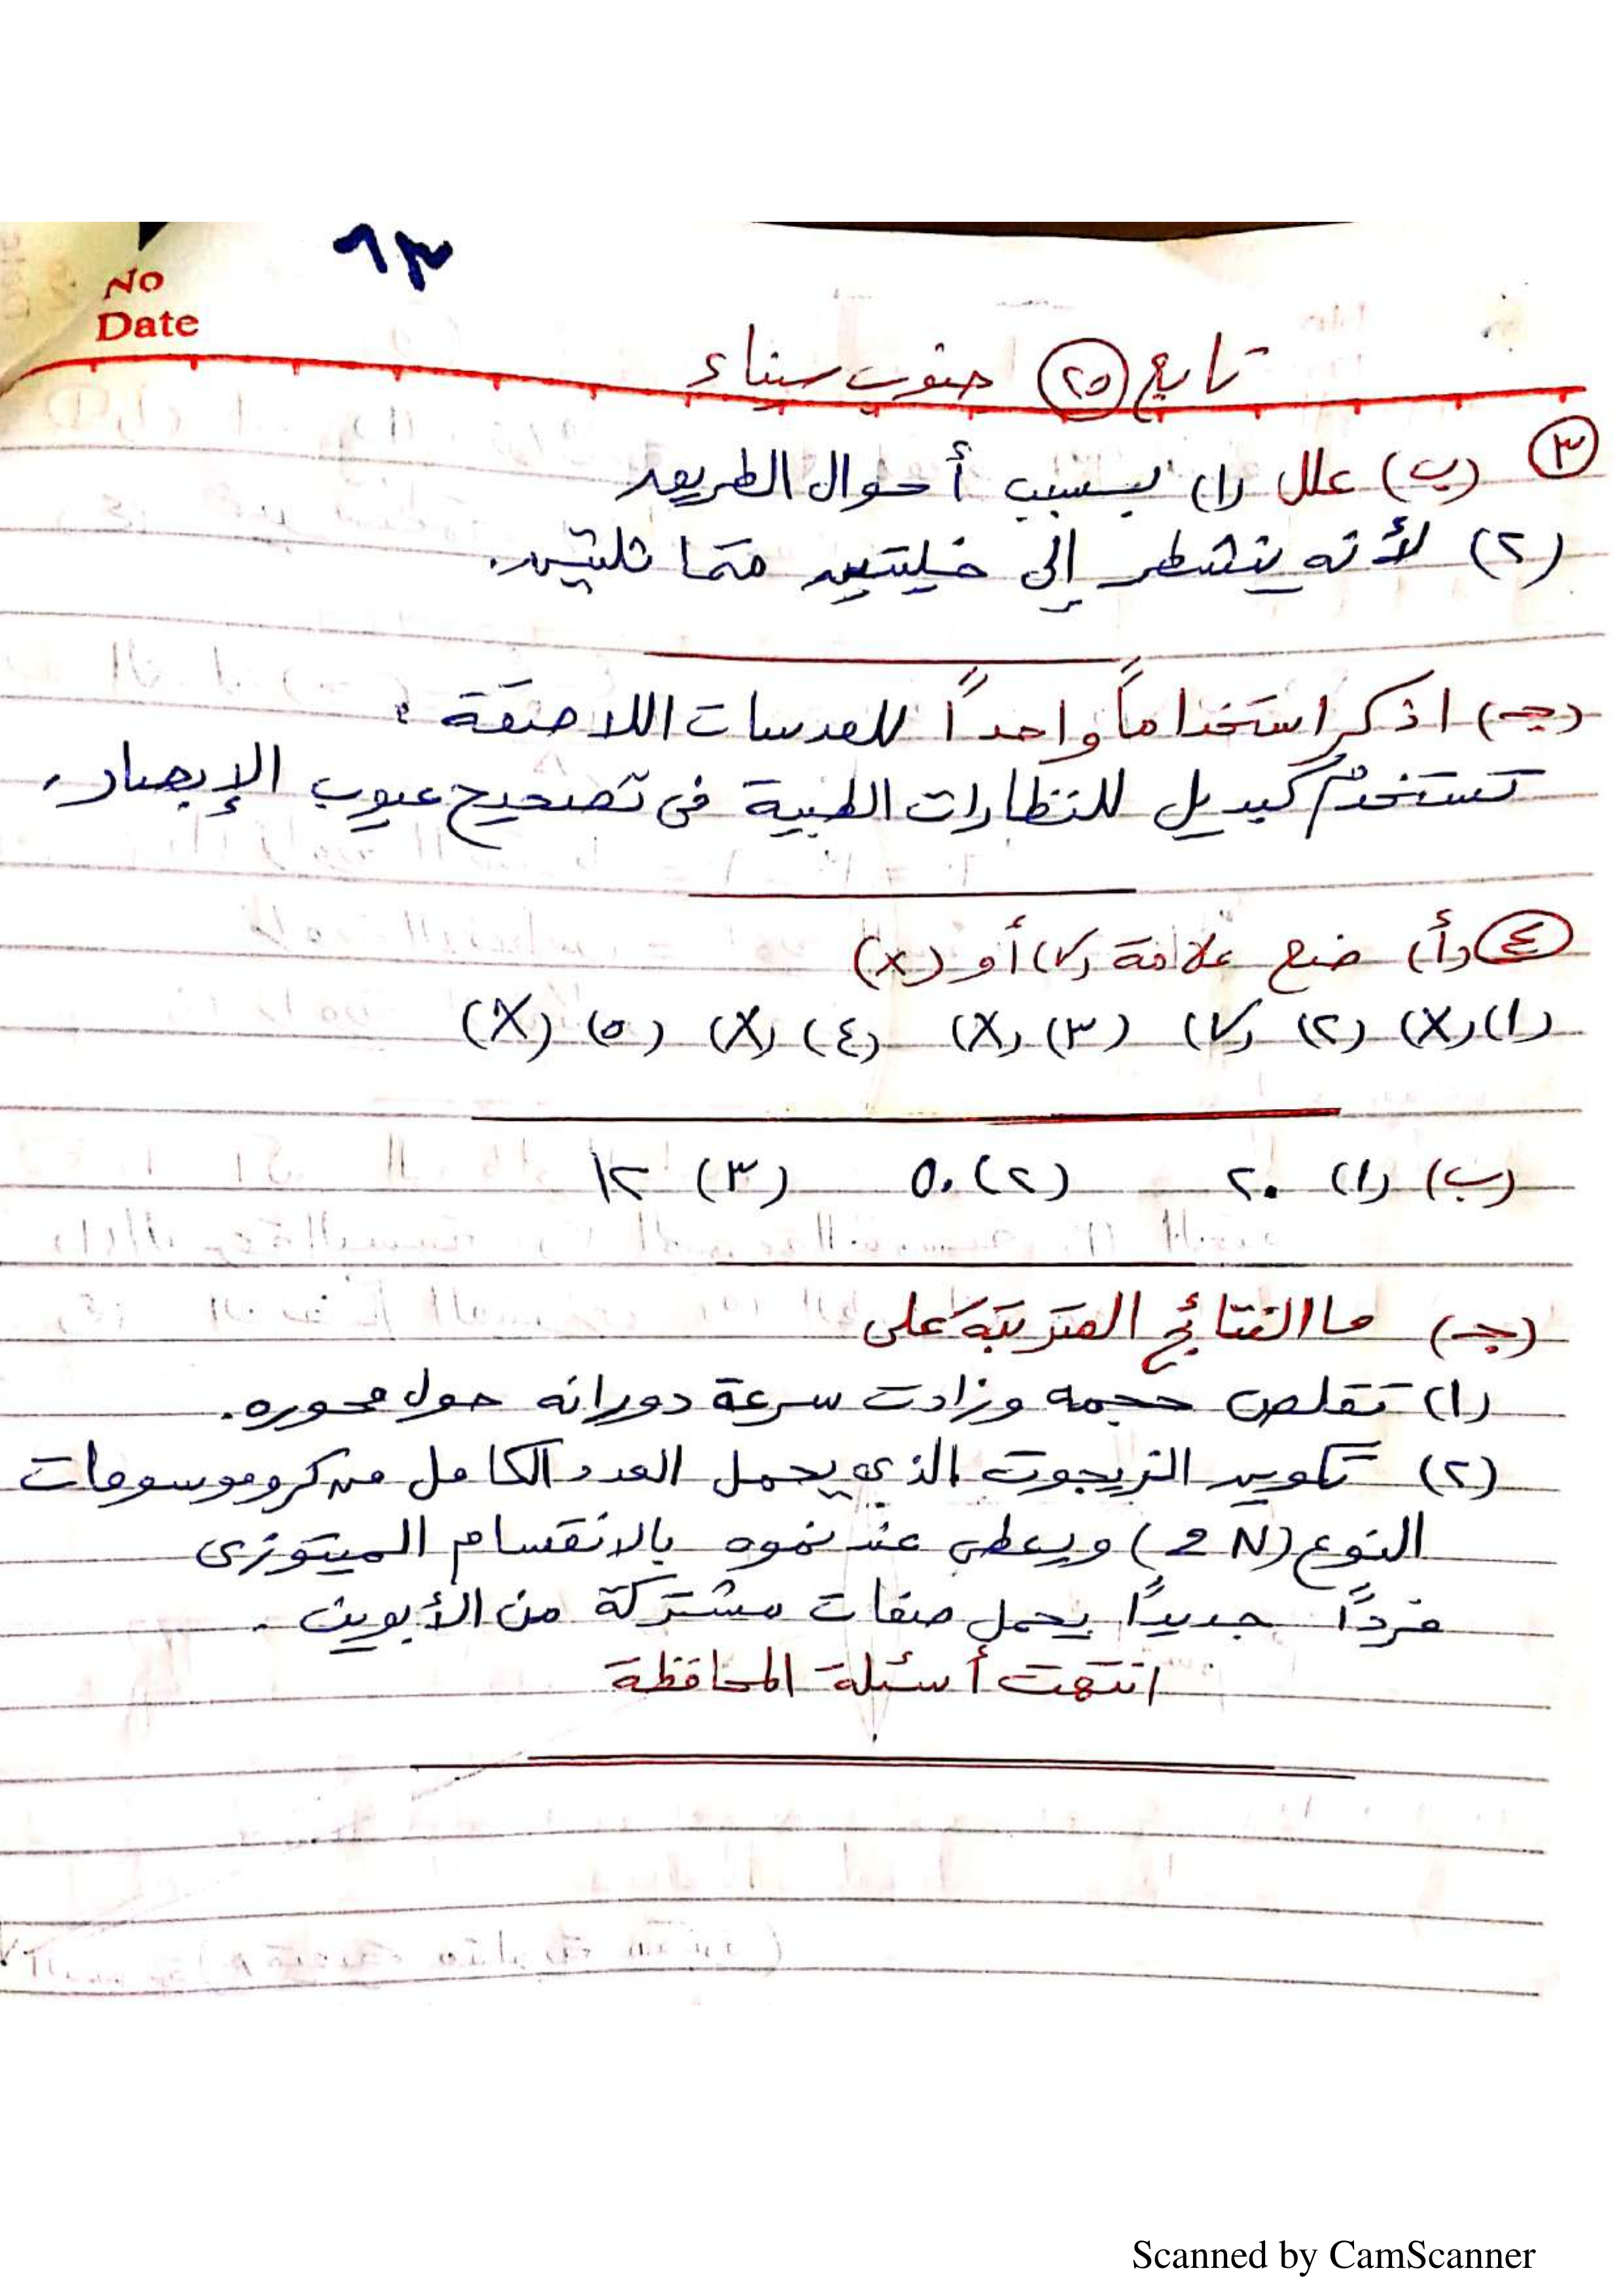 ٦٣
No
Date
تابع (٢٥) جنوب سيناء
(٣) (ب) علل (١) بسبب أحوال الطريق
(٢) لأنه ينشطر إلى خليتين متماثلتين.
(جـ) اذكر استخداماً واحداً للعدسات اللاصقة :
تستخدم كبديل للنظارات الطبية فى تصحيح عيوب الإبصار.
(٤) (أ) ضع علامة (√) أو (x)
(١) (X) (٢) (√) (٣) (X) (٤) (X) (٥) (X)
(ب) (١) ٢٠ (٢) ٥٠ (٣) ١٢
(جـ) ما النتائج المترتبة على
(١) تقلص حجمه وزادت سرعة دورانه حول محوره.
(٢) تكوين الزيجوت الذى يحمل العدد الكامل من كروموسومات
النوع (2N) ويعطى عند نموه بالانقسام الميتوزى
فردًا جديدًا يحمل صفات مشتركة من الأبوين.
انتهت أسئلة المحافظة
Scanned by CamScanner